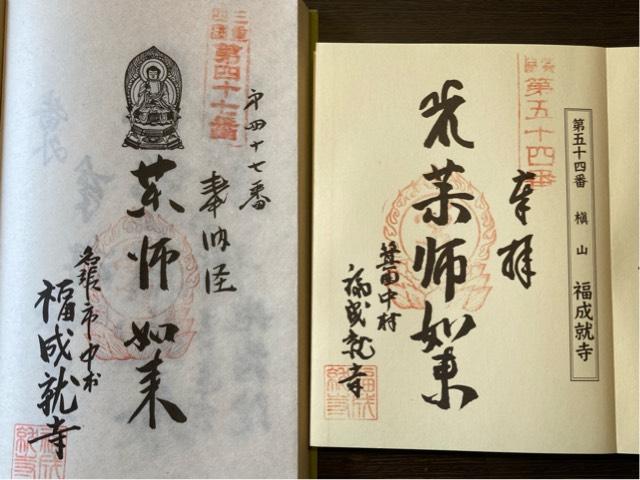 三重四国
第四十七番
第四十七番
奉納経
薬師如来
名張市中村
福成就寺
第五十四番
奉拝
薬師如来
箕曲中村
福成就寺
第五十四番 槇山 福成就寺